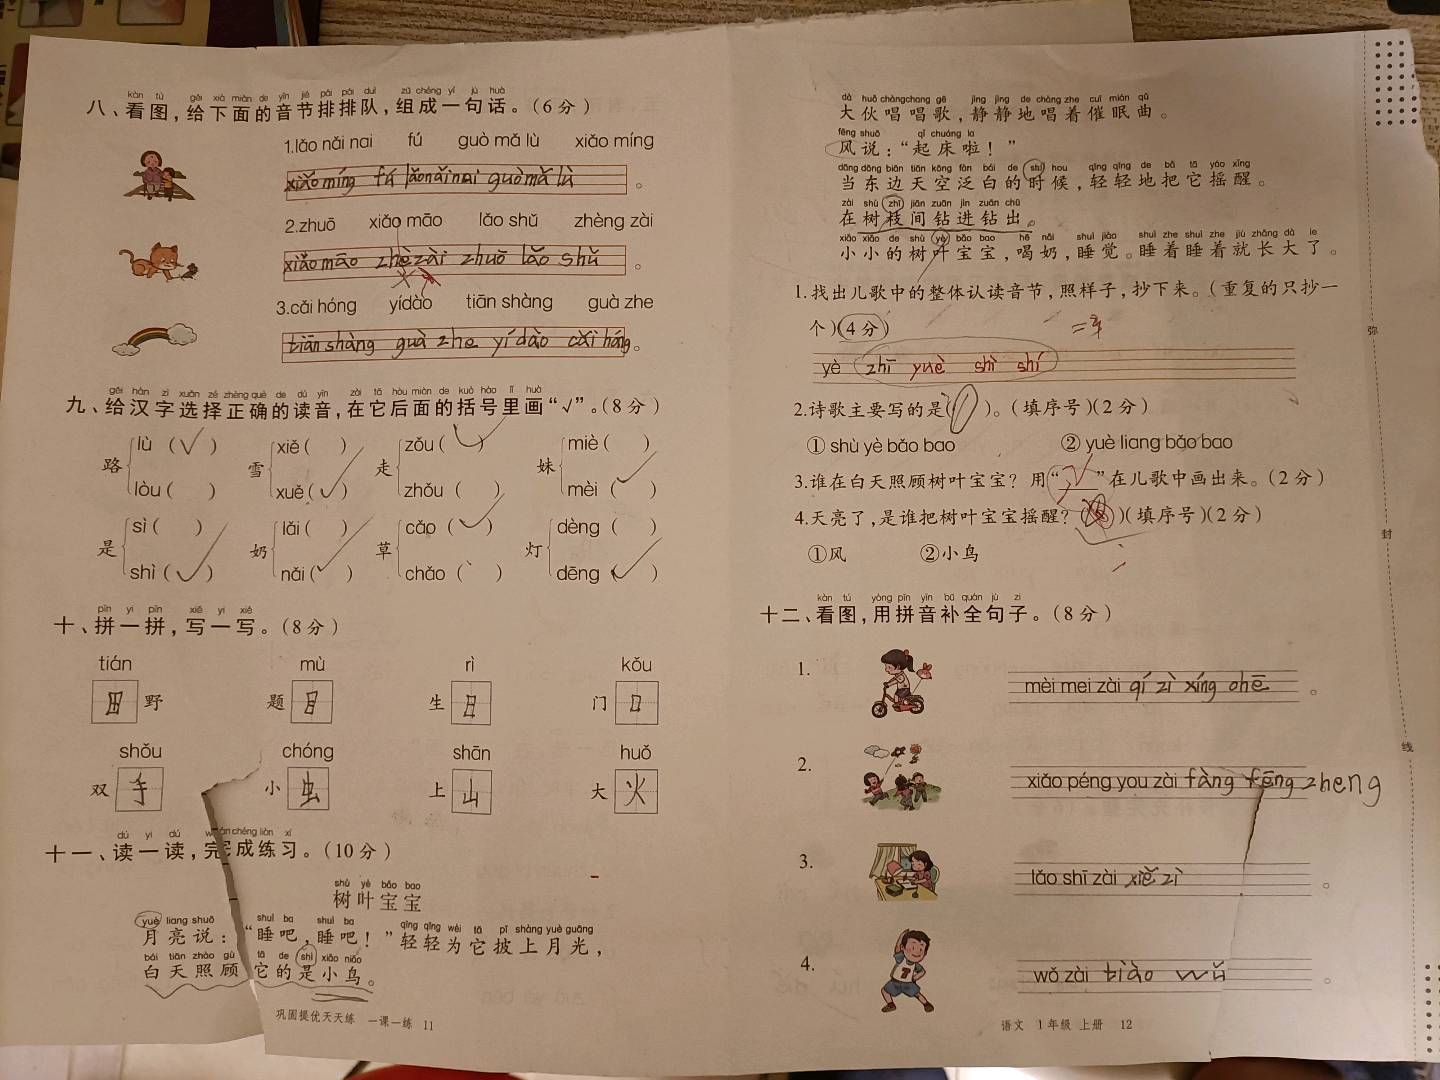 kàn tú gěi xià miàn de yīn jié pái pái duì zǔ chéng yí jù huà
八、看图,给下面的音节排排队,组成一句话。(6分)
1.lǎo nǎi nai fú guò mǎ lù xiǎo míng
xiǎo míng fú lǎo nǎi nai guò mǎ lù 。
2.zhuō xiǎo māo lǎo shǔ zhèng zài
xiǎo māo zhè zài zhuō lǎo shǔ 。
3.cǎi hóng yídào tiān shàng guà zhe
tiān shàng guà zhe yí dào cǎi háng 。
gěi hàn zì xuǎn zé zhèng què de dú yīn zài tā hòu miàn de kuò hào lǐ huà
九、给汉字选择正确的读音,在它后面的括号里画“√”。(8分)
路 lù (√) lòu ( )
雪 xiě ( ) xuě (√)
走 zǒu (√) zhǒu ( )
妹 miè ( ) mèi (√)
是 sì ( ) shì (√)
奶 lǎi ( ) nǎi (√)
草 cǎo (√) chǎo ( )
灯 dèng ( ) dēng (√)
pīn yi pīn xiě yi xiě
十、拼一拼,写一写。(8分)
tián mù rì kǒu
田野 题目 生日 门口
shǒu chóng shān huǒ
双手 小虫 上山 大火
dú yi dú wán chéng liàn xí
十一、读一读,完成练习。(10分)
shù yè bǎo bao
树叶宝宝
yuè liang shuō shuì ba shuì ba qīng qīng wèi tā pī shàng yuè guāng
月亮说:“睡吧,睡吧!”轻轻为它披上月光,
bái tiān zhào gù tā de shì xiǎo niǎo
白天照顾它的是小鸟。
巩固提优天天练 一课一练 11
dà huǒ chàng chang gē jìng jìng de chàng zhe cuī mián qǔ
大伙唱唱歌,静静地唱着催眠曲。
fēng shuō qǐ chuáng la
风说:“起床啦!”
dāng dōng biān tiān kōng fàn bái de shí hou qīng qīng de bǎ tā yáo xǐng
当东边天空泛白的时候,轻轻地把它摇醒。
zài shù zhī jiān zuān jìn zuān chū
在树枝间钻进钻出。
xiǎo xiǎo de shù yè bǎo bao hē nǎi shuì jiào shuì zhe shuì zhe jiù zhǎng dà le
小小的树叶宝宝,喝奶,睡觉。睡着睡着就长大了。
1.找出儿歌中的整体认读音节,照样子,抄下来。(重复的只抄一
个)(4分)
yè zhī yuè shì shí
2.诗歌主要写的是( )。(填序号)(2分)
① shù yè bǎo bao ② yuè liang bǎo bao
3.谁在白天照顾树叶宝宝?用“ ”在儿歌中画出来。(2分)
4.天亮了,是谁把树叶宝宝摇醒?( )(填序号)(2分)
①风 ②小鸟
kàn tú yòng pīn yīn bǔ quán jù zi
十二、看图,用拼音补全句子。(8分)
1. mèi mei zài qí zì xíng chē 。
2. xiǎo péng you zài fàng fēng zheng
3. lǎo shī zài xiě zì 。
4. wǒ zài tiào wǔ 。
语文 1年级 上册 12
弥
封
线